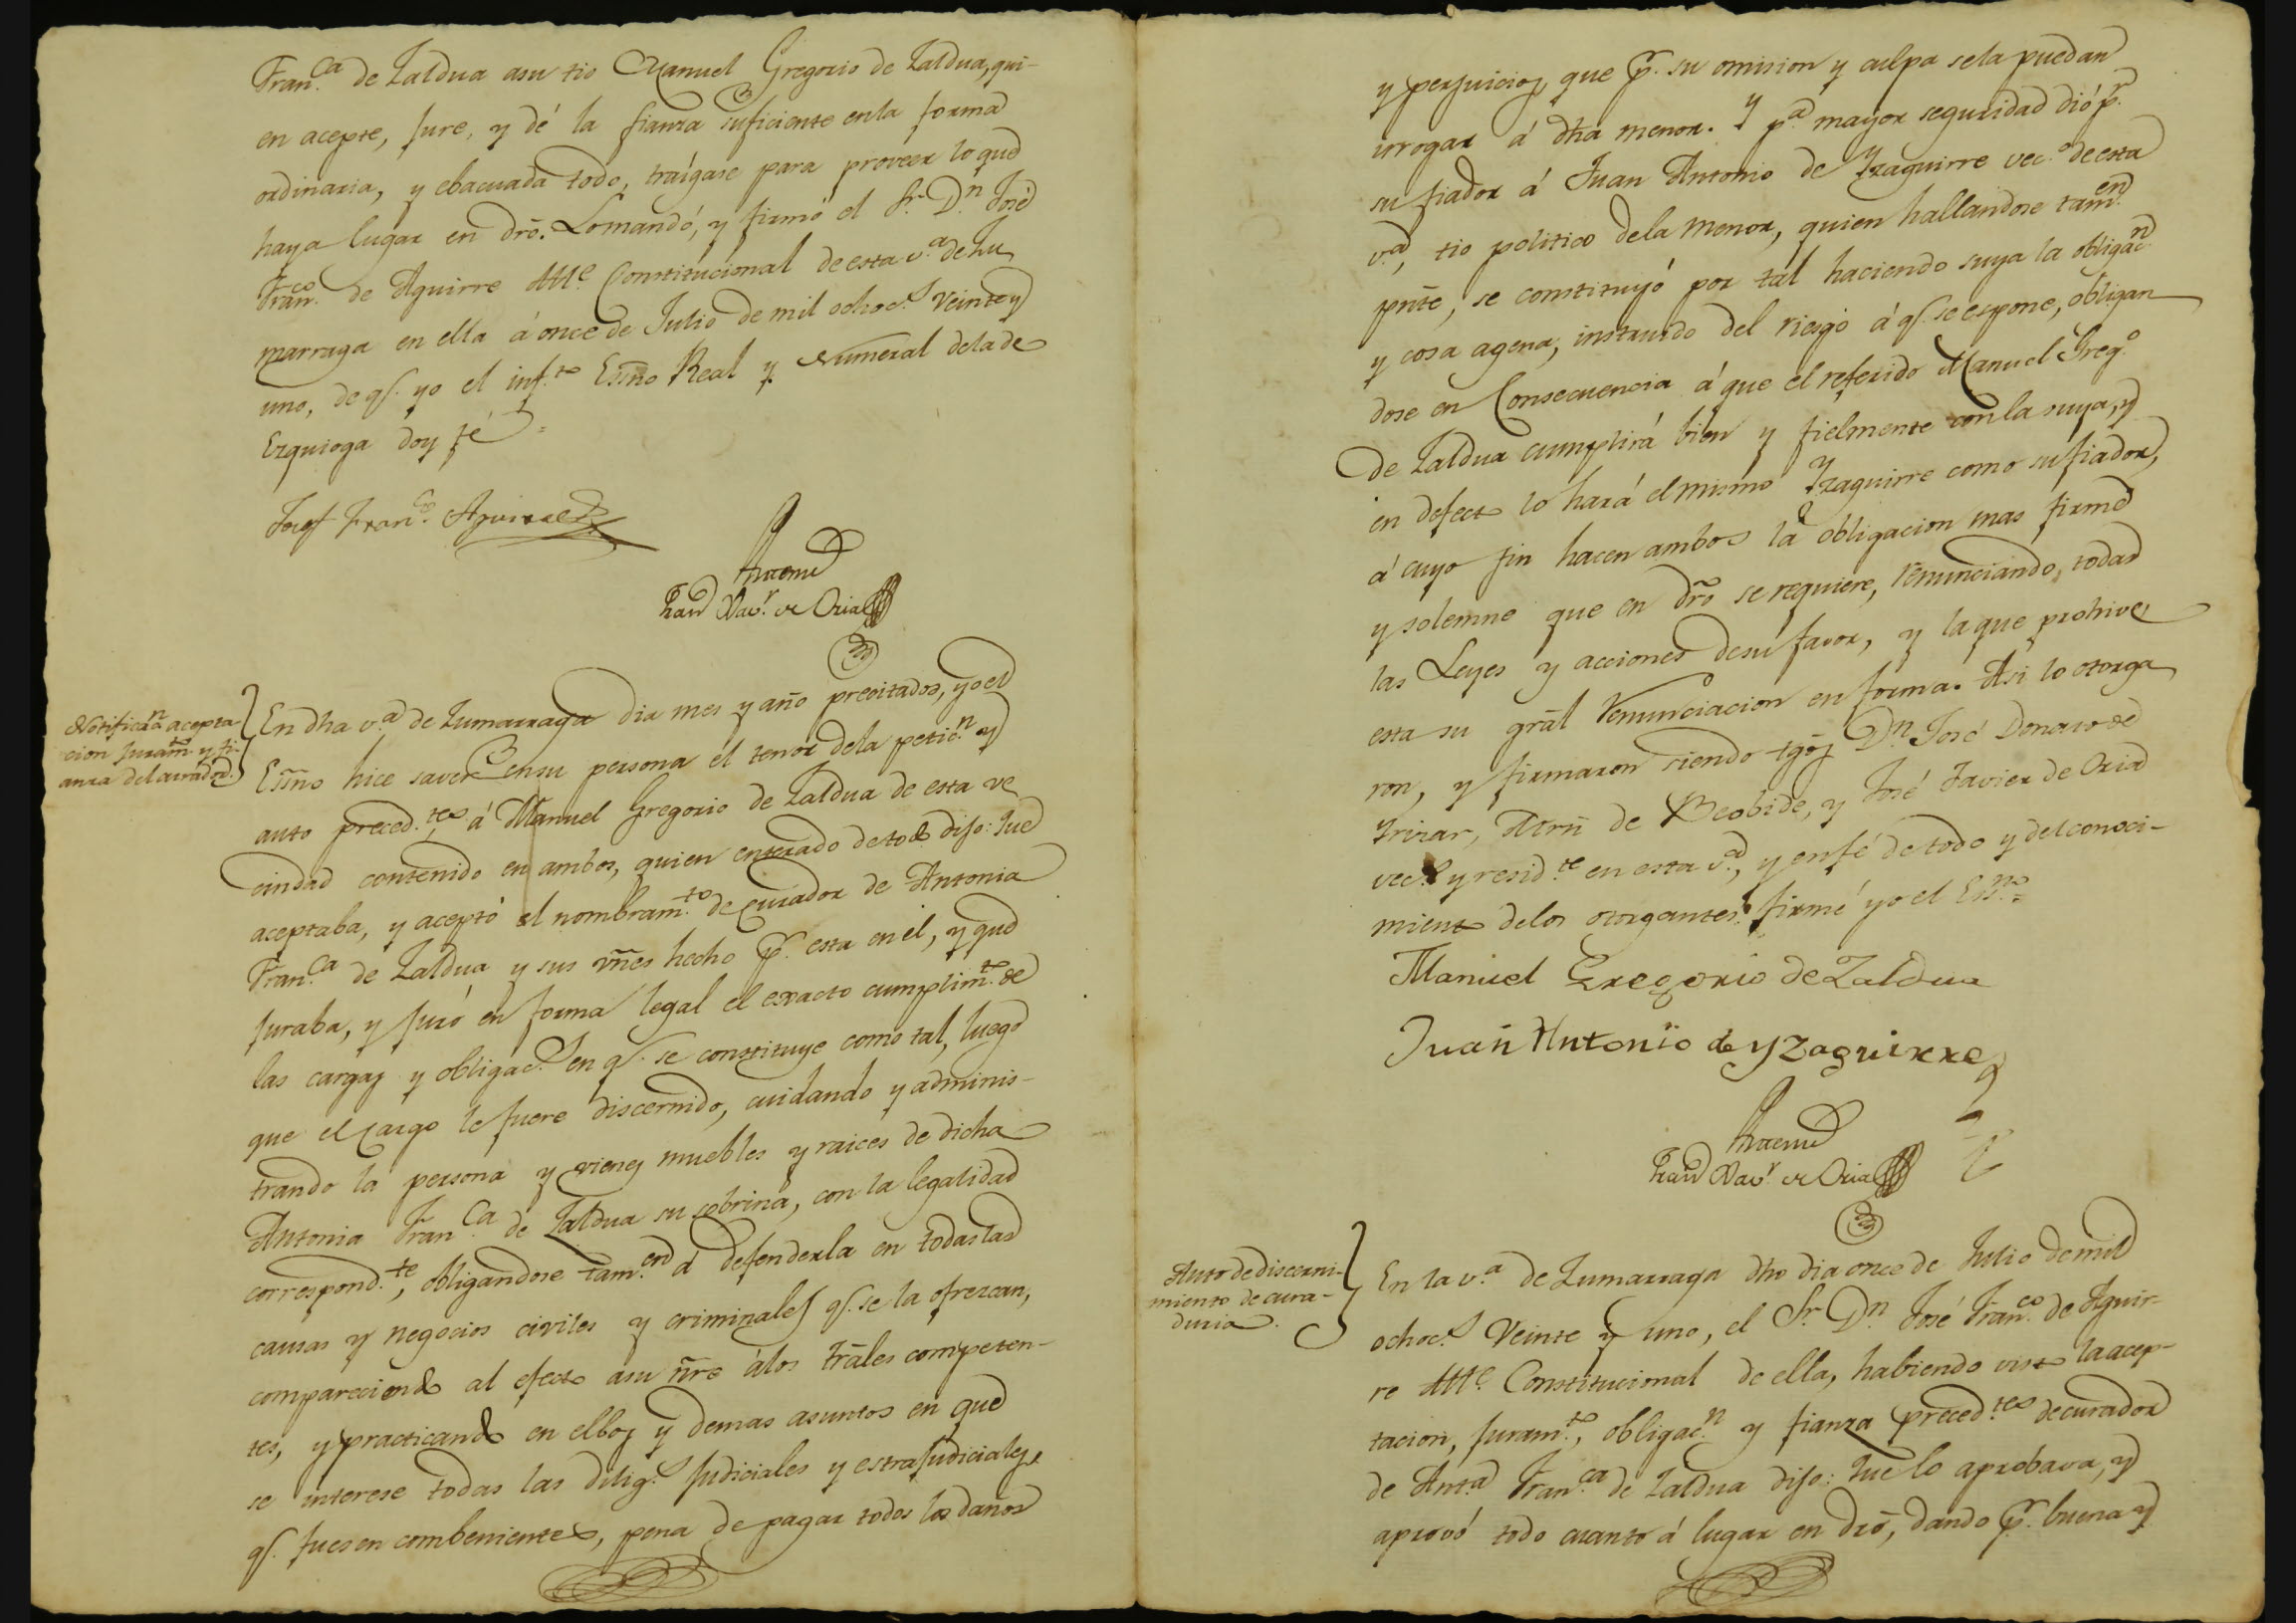 Fran.ca de Zaldua asu tio Manuel Gregorio de Zaldua, qui-
en acepte, jure, y dé la fianza suficiente en la forma
ordinaria, y ebacuada todo, traígase para proveer lo que
haya lugar en dro. Lo mandó, y firmó el Sr. Dn. José
Fran.co de Aguirre Alle. Constitucional de esta v.a de Zu
marraga en ella á once de Julio de mil ochoc.s veinte y
uno, de q.e yo el inf.to Esño Real y Numeral dela de
Ezquioga doy fé =
Josef Fran.co Aguirre
Antemi
Fran.co Xav.r de Oria
Notificaz.n acepta-
cion juram.to y fi-
anza del curador.
En dha v.a de Zumarraga dia mes y año precitados, yo el
Esño hice saver en su persona el tenor dela petic.n y
auto preced.tes á Manuel Gregorio de Zaldua de esta ve
cindad contenido en ambos, quien enterado de todo dijo: Que
aceptaba, y aceptó el nombram.to de curador de Antonia
Fran.ca de Zaldua y sus vñes hecho p.r esta en él, y que
juraba, y juró en forma legal el exacto cumplim.to de
las cargas y obligac.s en q.e se constituye como tal, luego
que el cargo le fuere discernido, cuidando y adminis-
trando la persona y vienes muebles y raices de dicha
Antonia Fran.ca de Zaldua su sobrina, con la legalidad
correspond.te, obligandose tam.en á defenderla en todas las
causas y negocios civiles y criminales q.e se la ofrezcan,
compareciendo al efecto asu ñre álos trales competen-
tes, y practicando en ellos y demas asuntos en que
se interese todas las dilig.s judiciales y estrajudiciales
q.e fuesen combenientes, pena de pagar todos los daños
y perjuicios que p.r su omision y culpa se la puedan
irrogar á dha menor. Y p.a mayor seguridad dió p.r
su fiador á Juan Antonio de Yzaguirre vec.o de esta
v.a, tio politico dela menor, quien hallandose tam.en
pnte, se constituyó por tal haciendo suya la obligac.n
y cosa agena, instruido del riesgo á q.e se espone, obligan
dose en Consecuencia á que el referido Manuel Greg.o
de Zaldua cumplirá bien y fielmente con la suya, y
en defecto lo hará el mismo Yzaguirre como su fiador,
á cuyo fin hacen ambos la obligacion mas firme
y solemne que en dro se requiere, renunciando todas
las Leyes y acciones de su favor, y la que prohive
esta su gral renunciacion en forma. Asi lo otorga
ron, y firmaron siendo tgos Dn. José Donato de
Yrizar, Mrn de Beobide, y José Javier de Oria
vec.s y resid.te en esta v.a, y en fé de todo y del conoci-
miento delos otorgantes firmé yo el Esno. =
Manuel Gregorio de Zaldua
Juan Antonio de yzaguirre
Antemi
Fran.co Xav.r de Oria
Auto de discerni-
miento de cura-
duria.
En la v.a de Zumarraga dho dia once de Julio de mil
ochoc.s veinte y uno, el Sr. Dn. José Fran.co de Aguir-
re Alle. Constitucional de ella, habiendo visto la acep-
tacion, juram.to, obligac.n y fianza preced.tes de curador
de Ant.a Fran.ca de Zaldua dijo: Que lo aprobava, y
aprovó todo cuanto á lugar en dro, dando p.r buena y